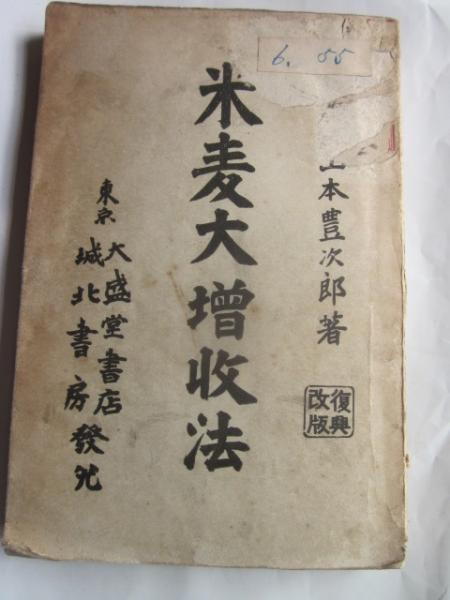 6. 55
山本豊次郎著
復興
改版
米麦大増収法
東京
大盛堂書店
城北書房發兌